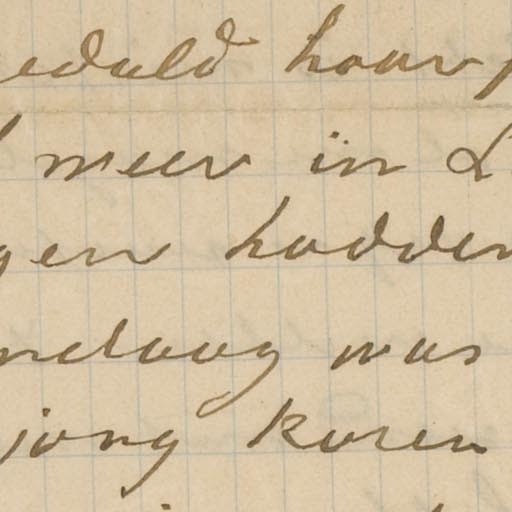 eduld haar
meer in
gen hadden
ndaag was
jong koren